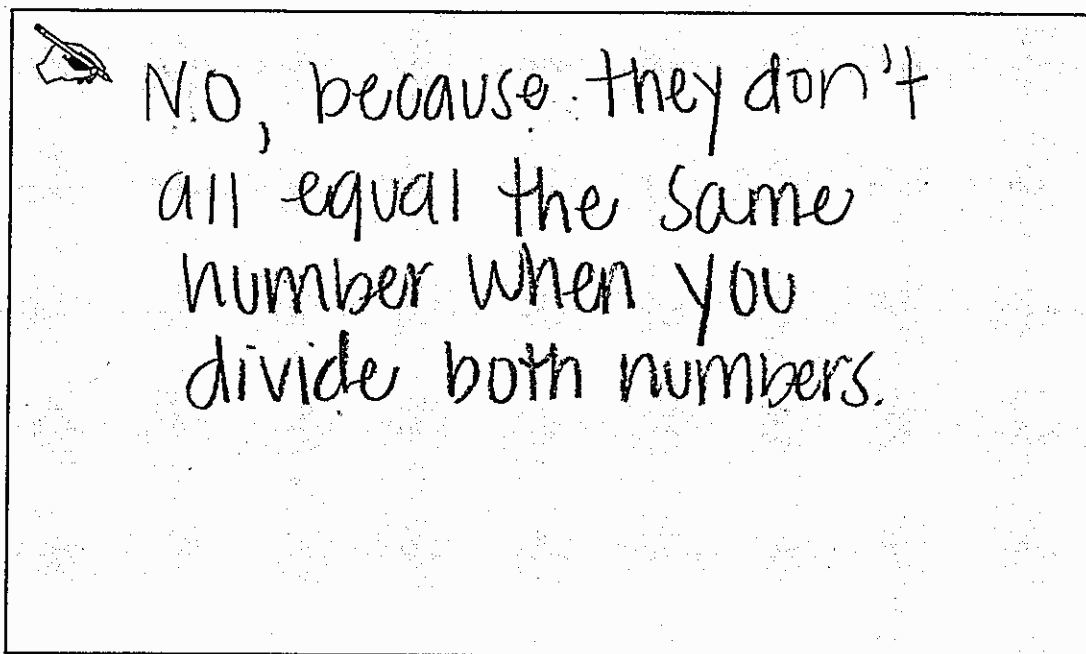 No, because they don't
all equal the same
number when you
divide both numbers.